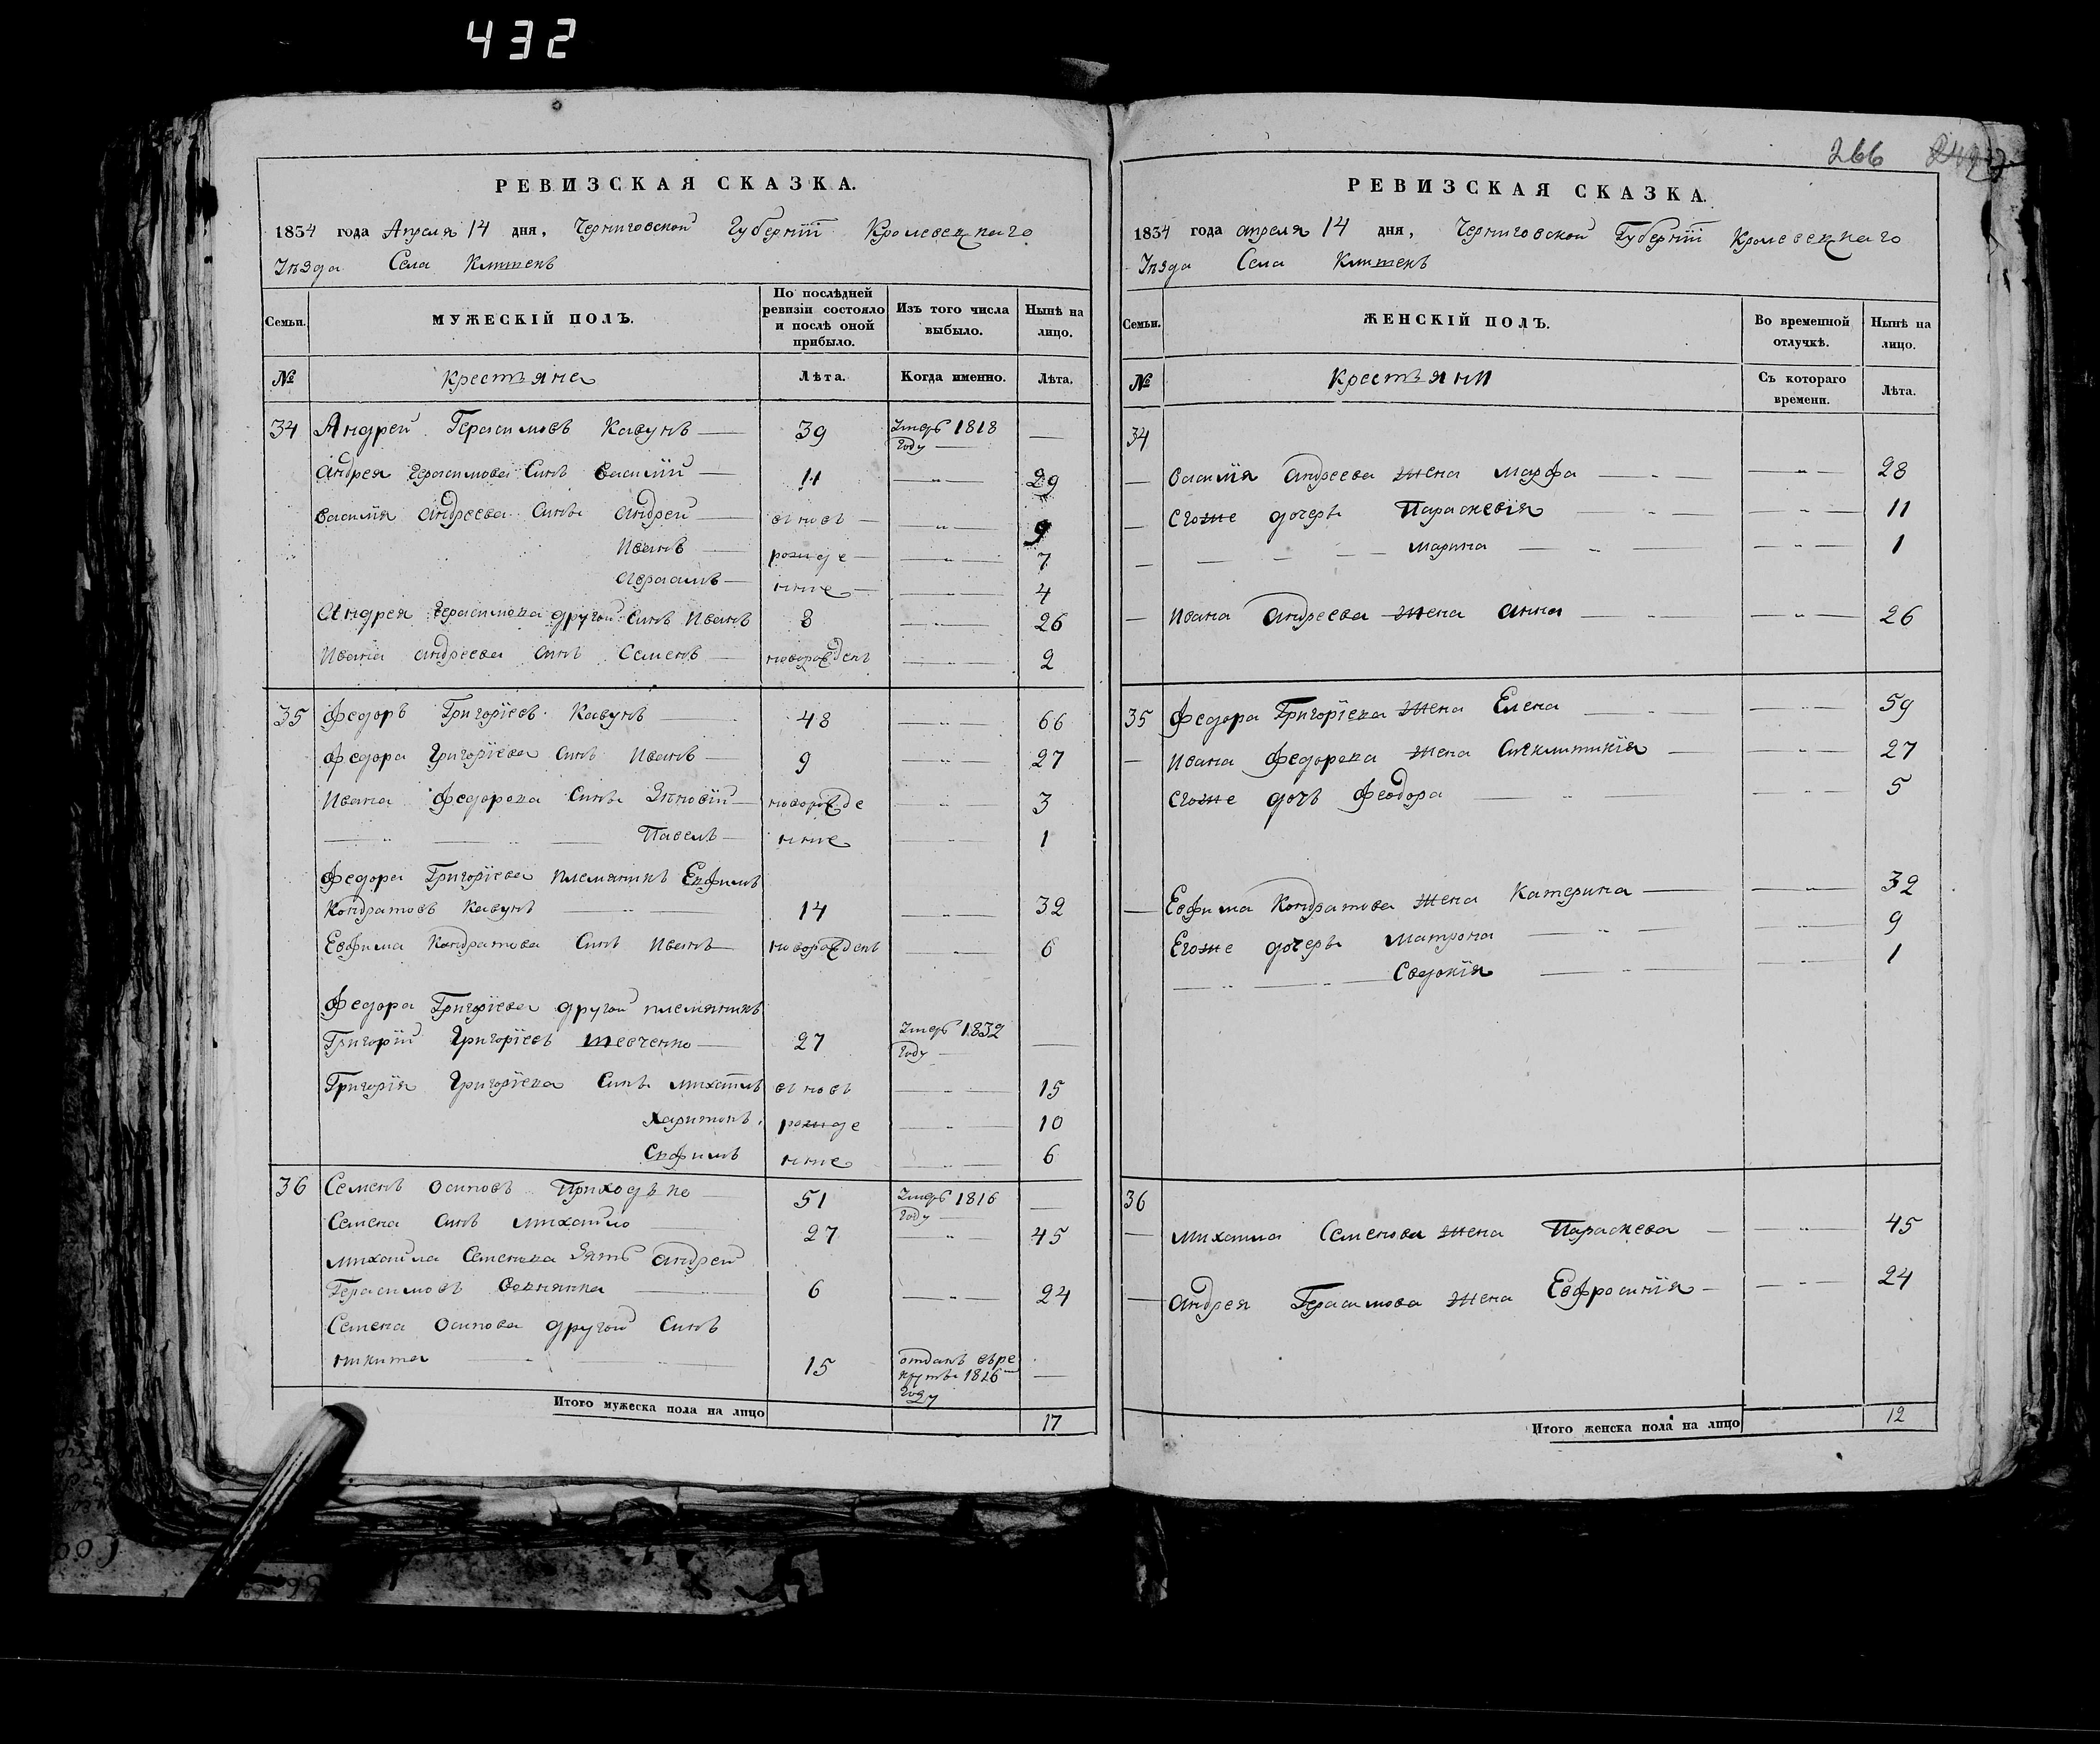 432
РЕВИЗСКАЯ СКАЗКА.
1834 года Апреля 14 дня, Черниговской Губерніи Кролевецкаго
Уѣзда Села Клишекъ
Семьи. МУЖЕСКІЙ ПОЛЪ. По послѣдней ревизіи состояло и послѣ оной прибыло. Изъ того числа выбыло. Нынѣ на лицо.
№ Крестьяне Лѣта. Когда именно. Лѣта.
34 Андрей Герасимовъ Кавунъ 39 Умеръ 1818 Году
Андрея Герасимова Синъ Василій 11 29
Василія Андреева Сини Андрей вновь 9
Иванъ рожде 7
Авраамъ нние 4
Андрея Герасимова другой Синъ Иванъ 8 26
Ивана Андреева Синъ Семенъ новорожденъ 2
35 Федоръ Григоріевъ Кавунъ 48 66
Федора Григоріева Синъ Иванъ 9 27
Ивана Федорова Сини Зѣновій новорожде 3
Павелъ нние 1
Федора Григоріева племянникъ Евфимъ
Кондратовъ Кавунъ 14 32
Евфима Кондратова Синъ Иванъ новорожденъ 6
Федора Григоріева другой племянникъ
Григорій Григоріевъ Шевченко 27 Умеръ 1832 Году
Григорія Григоріева Сини Михаилъ вновь 15
Харитонъ рожде 10
Евфимъ нние 6
36 Семенъ Осиповъ Приходько 51 Умеръ 1816 Году
Семена Синъ Михайло 27 45
Михайла Семенова Зять Андрей
Герасимовъ 6 24
Семена Осипова другой Синъ
Никита 15 отданъ въре крути 1826 Году
Итого мужеска пола на лицо 17
266
РЕВИЗСКАЯ СКАЗКА.
1834 года апреля 14 дня, Черниговской Губерніи Кролевецкаго
Уѣзда Села Клишекъ
Семьи. ЖЕНСКІЙ ПОЛЪ. Во временной отлучкѣ. Нынѣ на лицо.
№ Крестьяни Съ котораго времени. Лѣта.
34
Василія Андреева Жена Марфа 28
Егоже дочери Параскевія 11
Марина 1
Ивана Андреева Жена Анна 26
35 Федора Григоріева Жена Елена 59
Ивана Федорова Жена Синклитикія 27
Егоже дочь Феодора 5
Евфима Кондратова Жена Катерина 32
Егоже дочери Матрона 9
Евдокія 1
36
Михаила Семенова Жена Параскева 45
Андрея Герасимова Жена Евфросинія 24
Итого женска пола на лицо 12